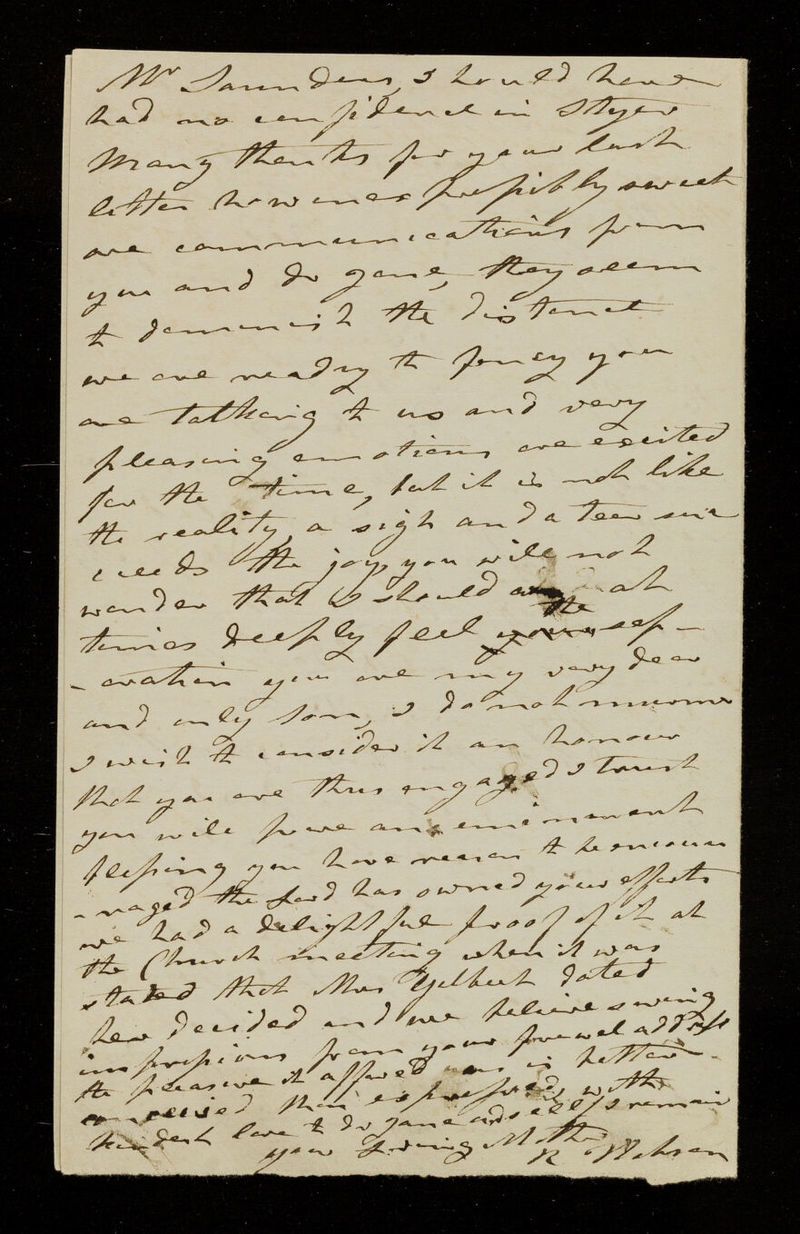 Mr Saunders, I hould have
had no confidence in Styer
Many thanks for your last
letter how inexpressibly sweet
are communications from
you and dr Jane, they seem
to deminish the distance
we are ready to fancy you
are talking to us and very
pleasing emotions are excited
for the time, but it is not like
the reality, a sigh and a tear suc
ceeds the joy you will not
wonder that I should at
times deeply feel the sep-
-eration you are my very dear
and only son, I do not murmur
I wish to consider it an honour
that you are thus engaged I trust
you will prove an eminent
blessing you have reason to be encou
-raged the Lord has owned your efforts
we had a delightful proof of it at
the Church meeting when it was
stated that Mrs Gilbert dated
her decided and we believe saving
impressions from your farewel address
the pleasure it afforded us is better
conceived than expressed, with
kindest love to dr Jane and self I remain
your loving Mother
R